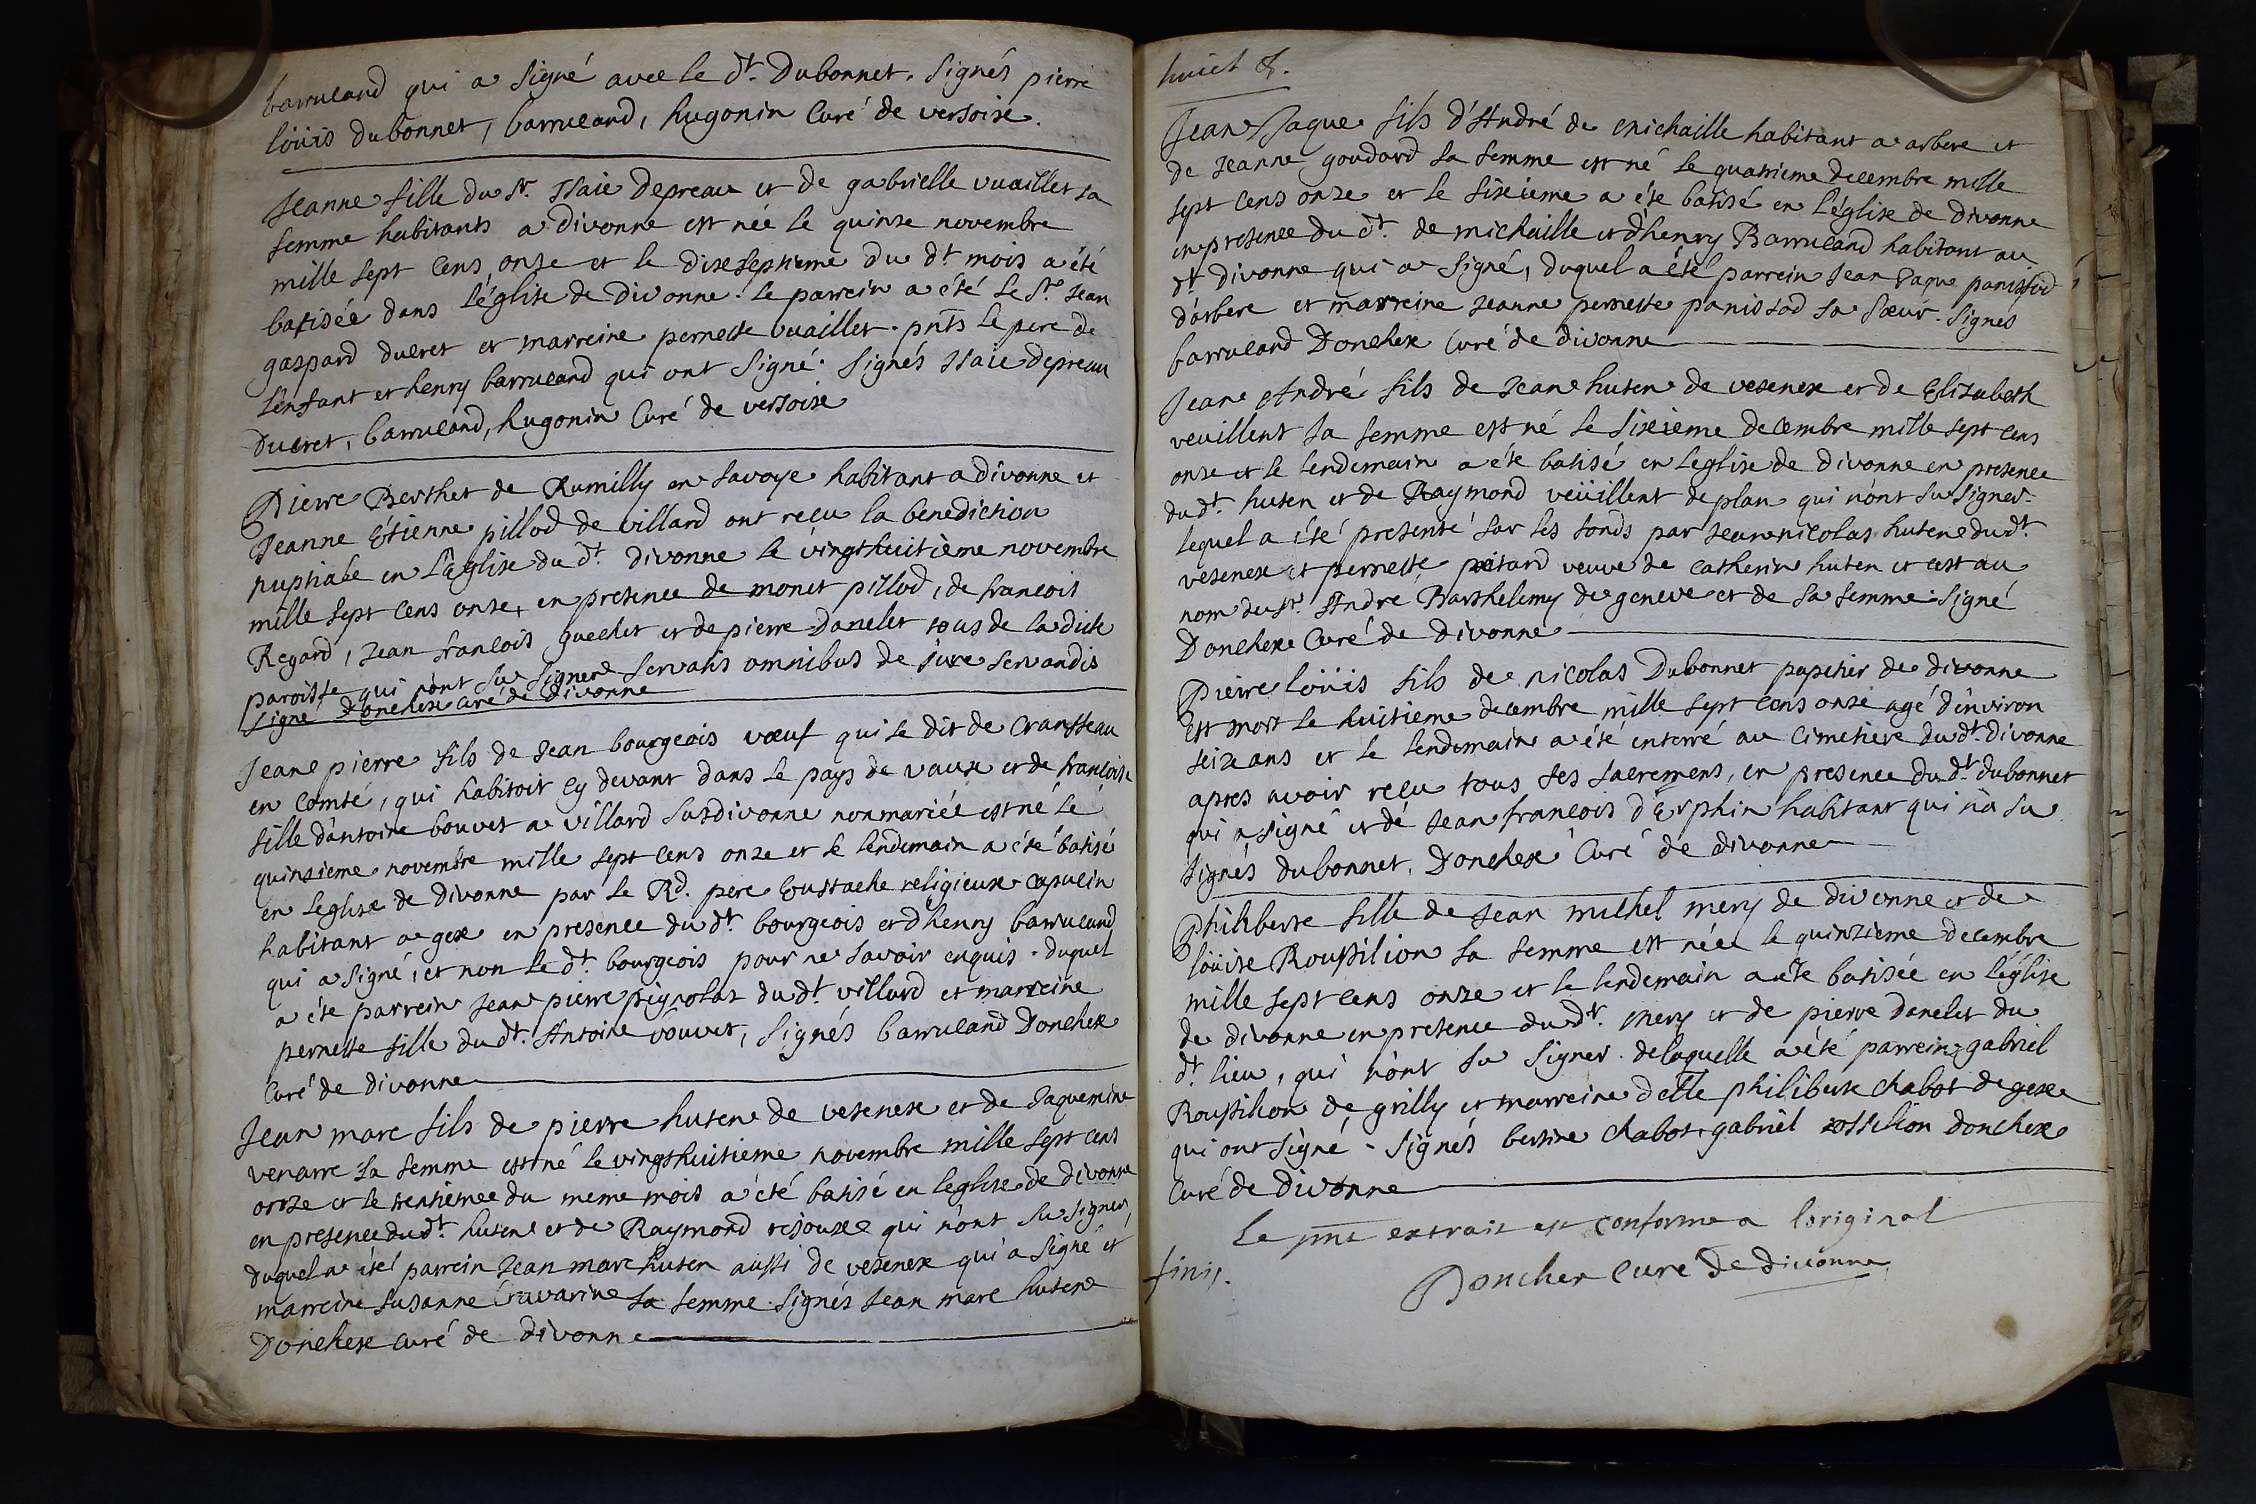 barruland qui a signé avec le dt. Dubonnet. signés pierre
loüis dubonnet, barruland, hugonin Curé de versoix.
Jeanne fille du Sr. Isaie depreau et de gabrielle vuaillet sa
femme habitants a divonne est née le quinze novembre
mille sept cens onze et le dixseptieme du dt. mois a été
batisée dans l'église de divonne. le parrein a été le Sr. Jean
gaspard ducret et marreine pernette vuaillet. pnts le pere de
l'enfant et henry barruland qui ont signé. signés Isaie depreau
Ducret, barruland, hugonin Curé de versoix
Pierre Berthet de Rumilly en savoye habitant a divonne et
Jeanne Étienne pillod de villard ont reçu la benediction
nuptiale en l'église du dt. divonne le vingthuitième novembre
mille sept cens onze, en presence de monet pillod, de francois
Regard, Jean francois guechet et de pierre Danelet tous de la dicte
paroisse qui n'ont su signer servatis omnibus de jure servandis
signé Donchex curé de divonne
Jean pierre fils de Jean bourgeois vœuf qui se dit de Cransseau
en Comté, qui habitoit cy devant dans le pays de vaux et de francoise
fille d'antoine bouvet a villard sus divonne non mariée est né le
quinzieme novembre mille sept cens onze et le lendemain a été batisé
en leglise de divonne par le Rd. pere Eustache religieux capucin
habitant a gex en presence du dt. bourgeois et d'henry barruland
qui a signé, et non le dt. bourgeois pour ne savoir enquis. duquel
a été parrein Jean pierre pignolaz du dt. villard et marreine
pernette fille du dt. Antoine bouvet, signés barruland Donchex
Curé de divonne
Jean marc fils de pierre huten de vesenex et de Jaquemine
venarre sa femme est né le vingthuitieme novembre mille sept cens
onze et le trentieme du meme mois a été batisé en leglise de divonne
en presence du dt. huten et de Raymond rejoux qui n'ont su signer,
duquel a été parrein Jean marc huten aussi de vesenex qui a signé et
marreine susanne Cravarine sa femme. signés Jean marc huten
Donchex curé de divonne
huict 8.
Jean Jaque fils d'André de michaille habitant a arbere et
de Jeanne goudard sa femme est né le quatrieme decembre mille
sept cens onze et le sixieme a été batisé en l'église de divonne
en presence du dt. de michaille et d'henry Barruland habitant au
dt divonne qui a signé, duquel a été parrein Jean Jaque panissod
d'arbere et marreine Jeanne pernette panissod sa sœur. signés
barruland Donchex Curé de divonne
Jean André fils de Jean huten de vesenex et de Elizabeth
veuillent sa femme est né le sixieme decembre mille sept cens
onze et le lendemain a été batisé en leglise de divonne en presence
du dt. huten et de Raymond veüillent de plan qui n'ont su signer.
lequel a été presenté sur les fonds par Jean nicolas huten du dt.
vesenex et pernette pitard veuve de catherin huten et cest au
nom du Sr. André Barthelemy de geneve et de sa femme. signé
Donchex Curé de divonne
Pierre loüis fils de nicolas Dubonnet papetier de divonne
est mort le huitieme decembre mille sept cens onze agé d'environ
seize ans et le lendemain a été enterré au cimetiere du dt. divonne
apres avoir reçu tous ses sacremens, en presence du dt. dubonnet
qui a signé et de Jean francois d'Erphin habitant qui n'a su
signés dubonnet. Donchex Curé de divonne
Philiberte fille de Jean michel mery de divonne et de
loüise Roussilion sa femme est née le quinzieme decembre
mille sept cens onze et le lendemain a été batisée en l'église
de divonne en presence du dt. mery et de pierre danelet du
dt. lieu, qui n'ont su signer. de laquelle a été parrein gabriel
Roussilion de grilly et marreine delle philiberte chabot de gex
qui ont signé. signés bertine chabot gabriel rossilion donchex
Curé de divonne
Le pnt extrait est conforme a loriginal
finis.
Donchex Curé de divonne